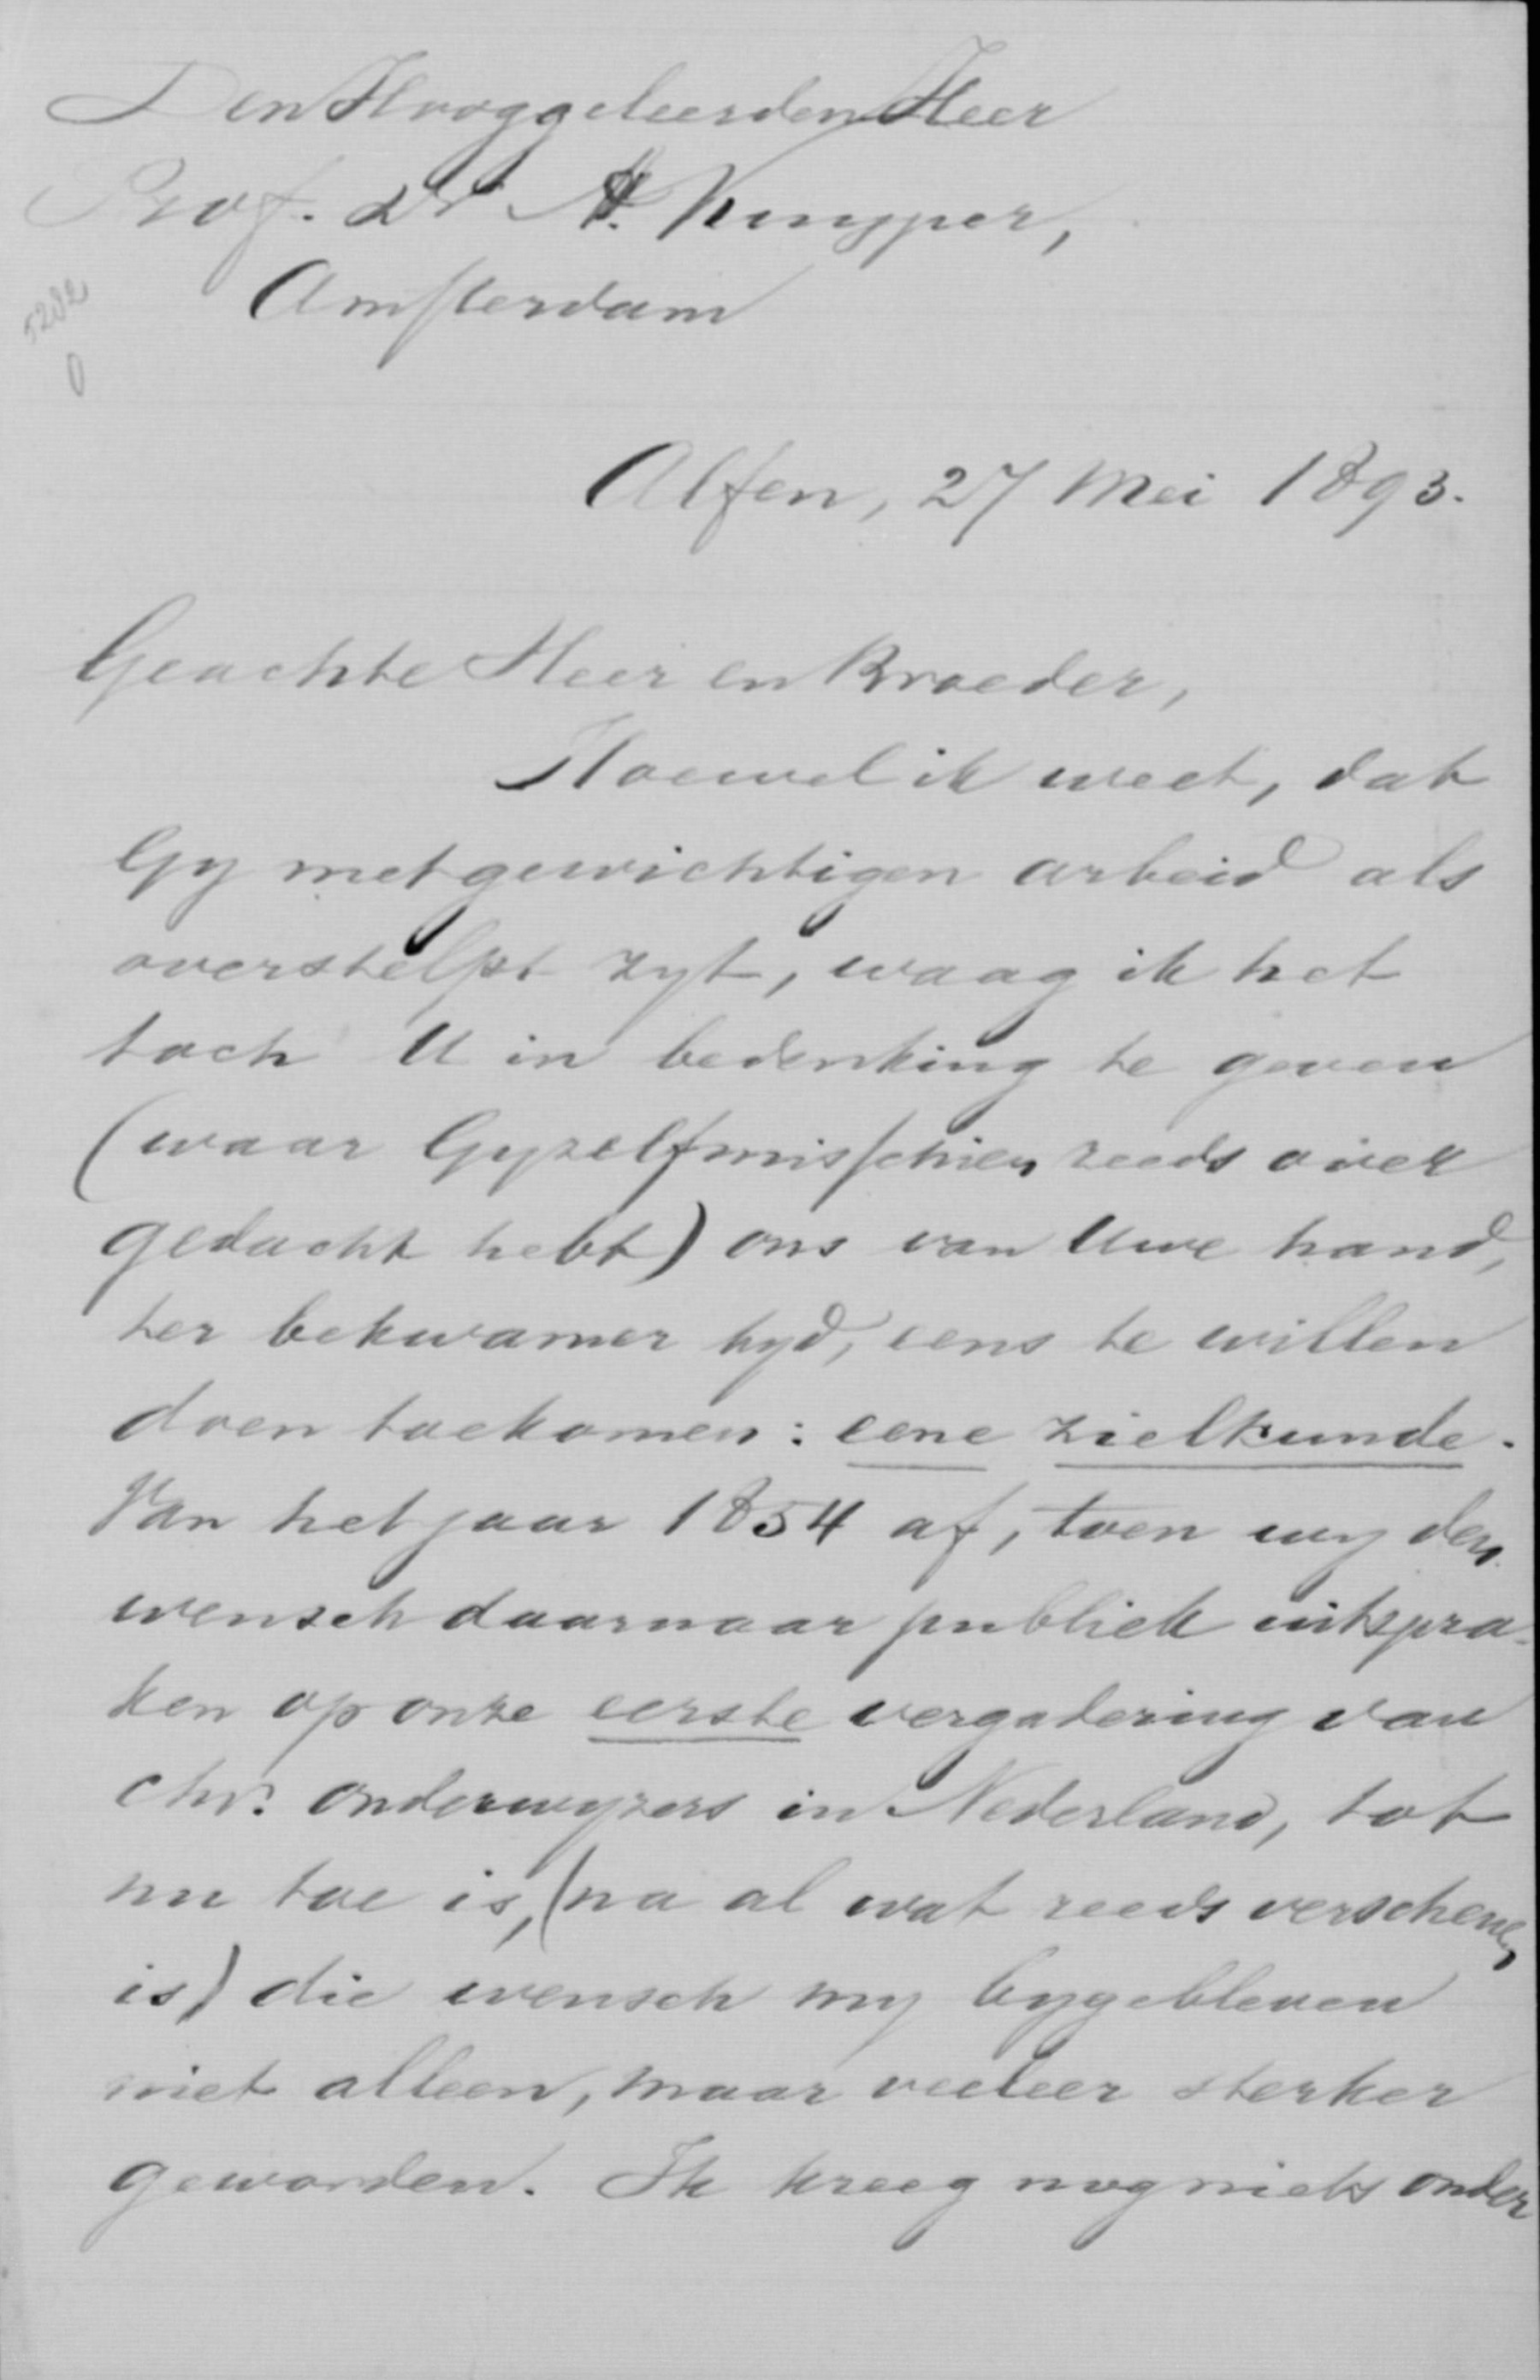 Den Hooggeleerden Heer
Prof. Dr A. Kuyper,
Amsterdam
5282
0
Alfen, 27 Mei 1893.
Geachte Heer en Broeder,
Hoewel ik weet, dat
Gy met gewichtigen arbeid als
overstelpt zyt, waag ik het
toch U in bedenking te geven
(waar Gy zelf misschien reeds over
gedacht hebt) ons van Uwe hand,
ter bekwamer tyd, eens te willen
doen toekomen: eene zielkunde.
Van het jaar 1854 af, toen wy den
wensch daarnaar publiek uitspra-
ken op onze eerste vergadering van
chr. onderwyzers in Nederland, tot
nu toe is, (na al wat reeds verschenen
is) die wensch my bygebleven
niet alleen, maar veeleer sterker
geworden. Ik kreeg nog niets onder